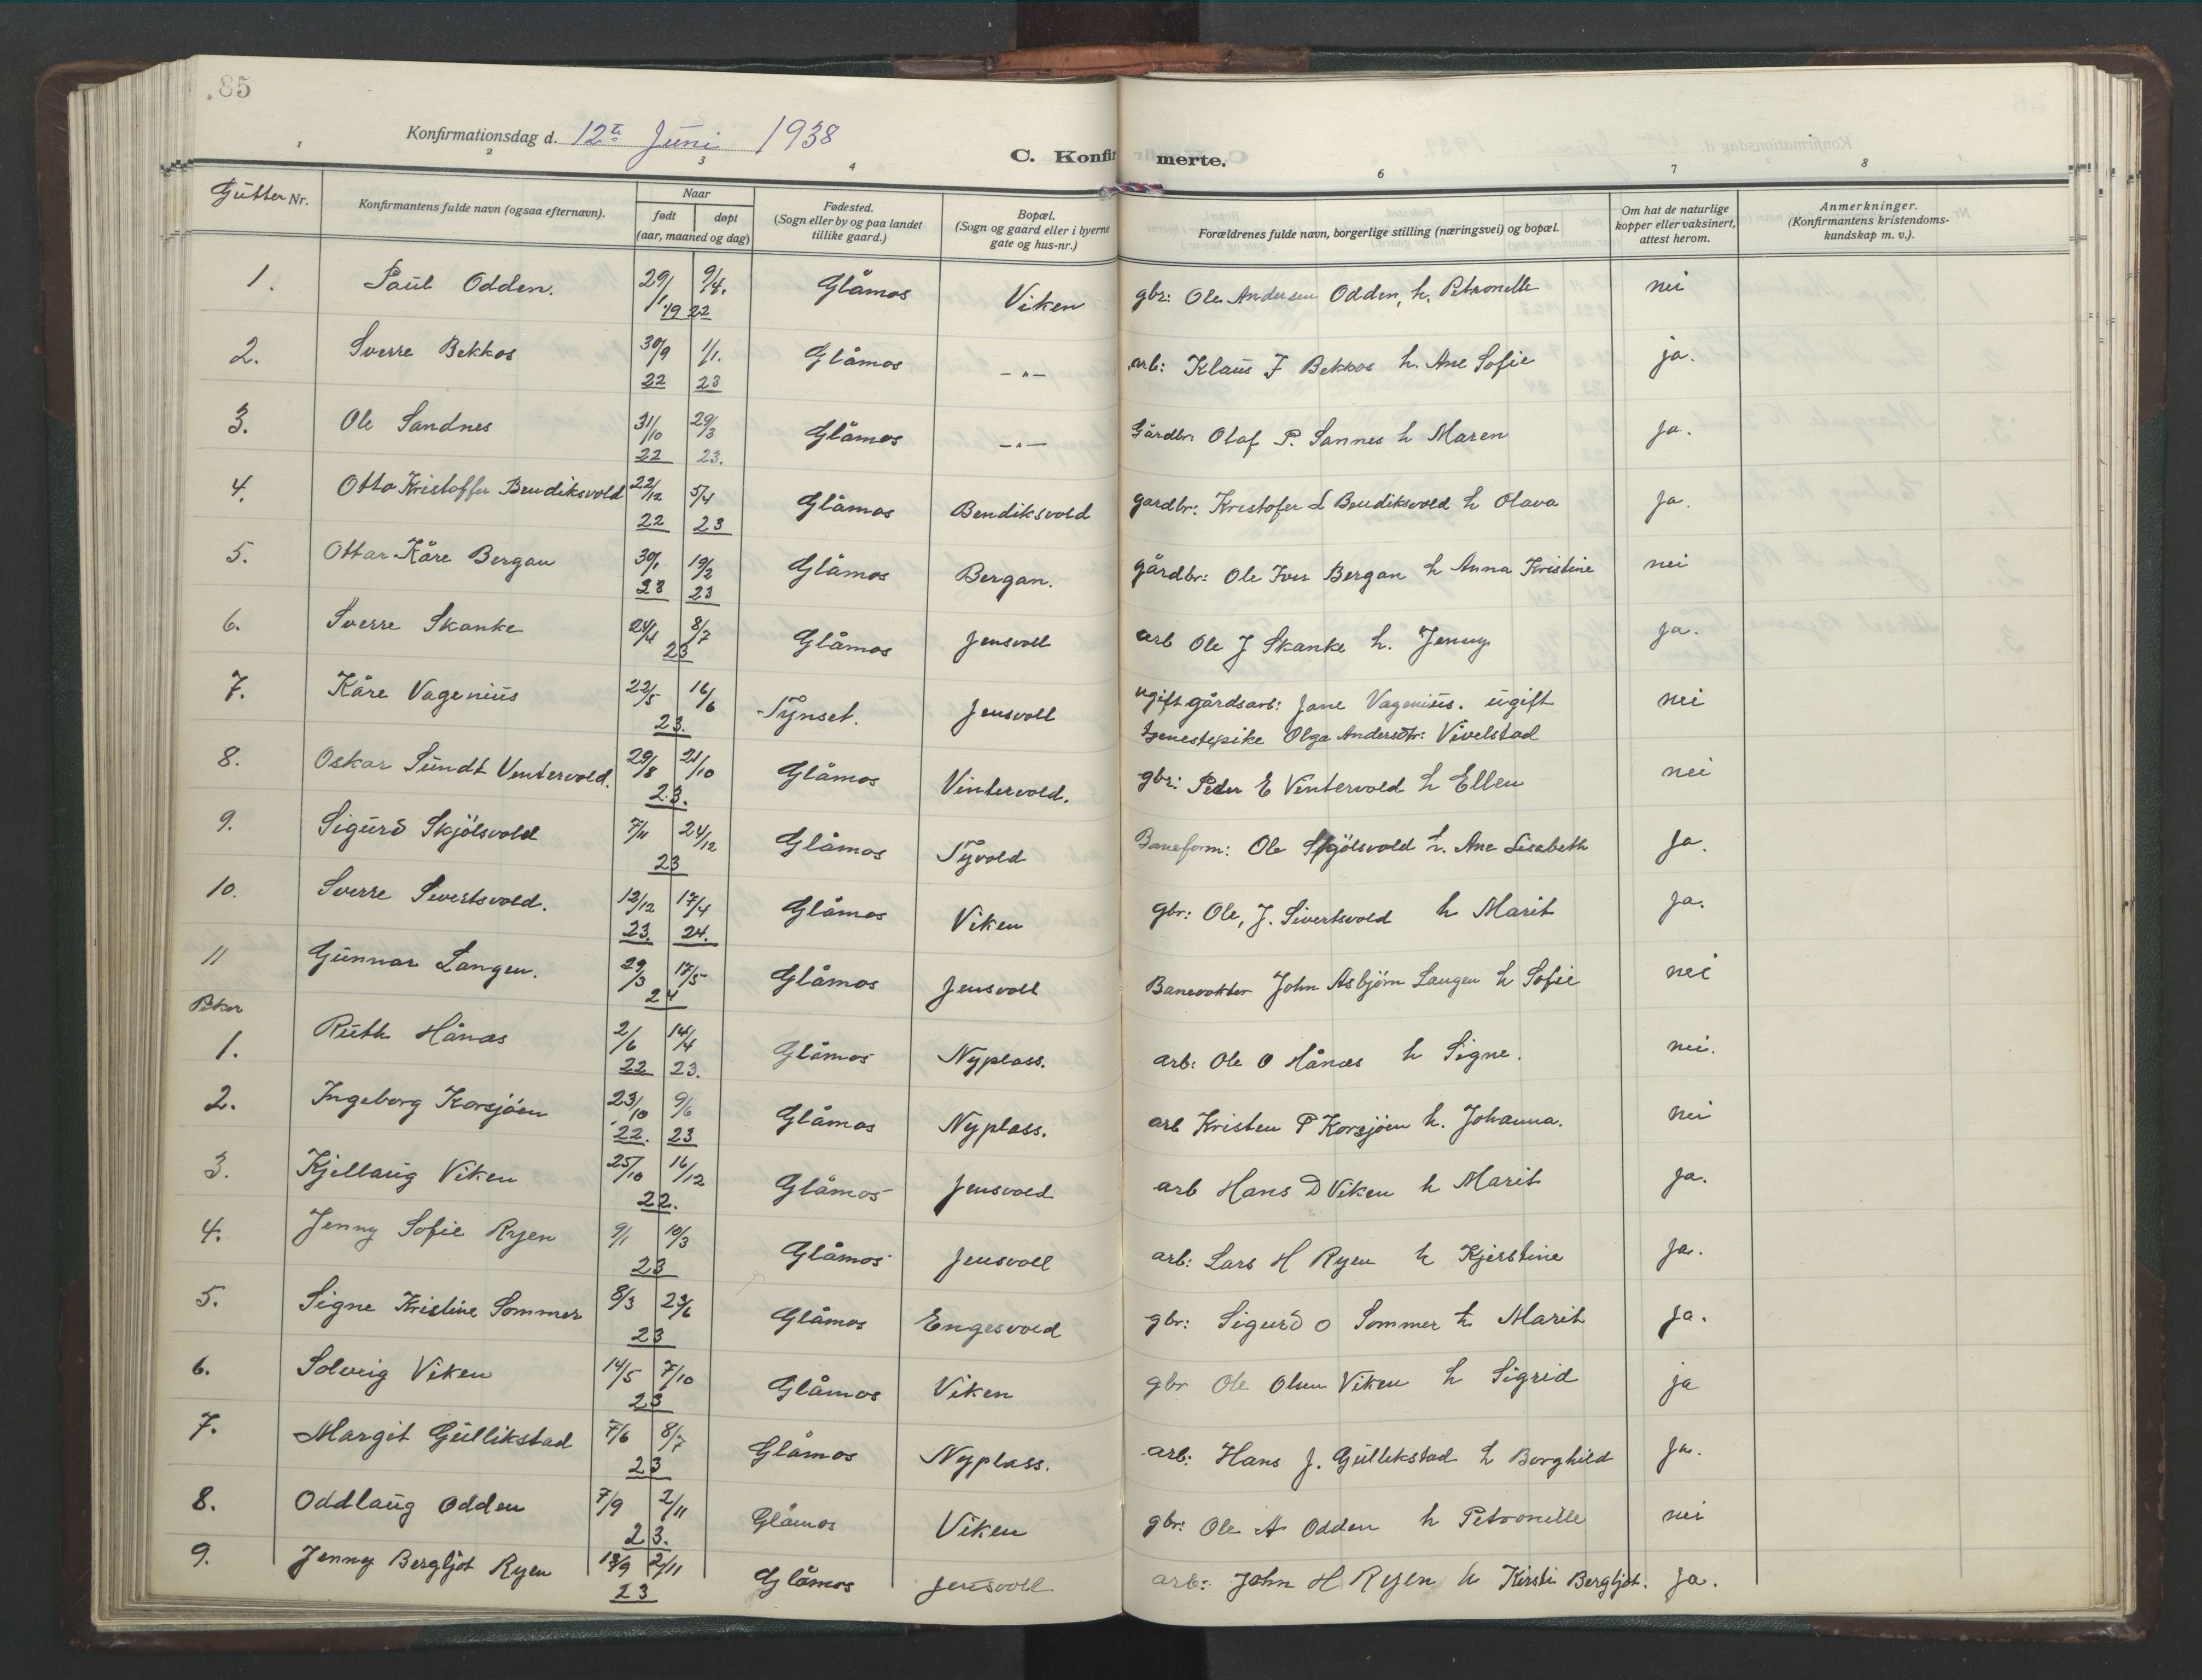 85
Konfirmationsdag d. 12te Juni 1938
C. Konfirmerte.
1 2 3 4 6 7 8
Gutter Nr.
Konfirmantens fulde navn (ogsaa efternavn).
Naar
født døpt
(aar, maaned og dag)
Fødested.
(Sogn eller by og paa landet
tillike gaard.)
Bopæl.
(Sogn og gaard eller i byerne
gate og hus-nr.)
Forældrenes fulde navn, borgerlige stilling (næringsvei) og bopæl.
Om hat de naturlige
kopper eller vaksinert,
attest herom.
Anmerkninger.
(Konfirmantens kristendoms-
kundskap m. v.).
1. Paul Odden. 29/1 9/4. 1922 Glåmos Viken gbr: Ole Andersen Odden, h. Petronelle nei
2. Sverre Bekkos 30/9 22 1/1. 23 Glåmos -"- arb: Klaus J Bekkos h. Ane Sofie ja.
3. Ole Sandnes 31/10 22 29/3 23. Glåmos -"- Gårdbr Olaf P. Sannes h Maren ja.
4. Otto Kristoffer Bendiksvold 22/12 22 5/4 23 Glåmos Bendiksvold gardbr: Kristofer L Bendiksvold h Olava ja.
5. Ottar Kåre Bergan 30/1 23 19/2 23 Glåmos Bergan. gårdbr: Ole Iver Bergan h Anna Kristine nei
6. Sverre Skanke 24/4 8/7 23 Glåmos Jensvoll arb Ole J Skanke h. Jenny ja.
7. Kåre Vagenius 22/5 16/6 23. Tynset. Jensvoll ugift gårdsarb: Jane Vagenius. ugift
tjenestepike Olga Andersdtr: Vivelstad nei
8. Oskar Sundt Ventervold. 29/8 21/10 23. Glåmos Vintervold. gbr: Peder E Ventervold h Ellen nei
9. Sigurd Skjölsvold 7/11 24/12 23 Glåmos Tyvold Baneform: Ole Skjölsvold h. Ane Lisabeth ja.
10. Sverre Sivertsvold. 12/12 23. 17/4 24. Glåmos Viken gbr: Ole, J. Sivertsvold h Marit ja.
11 Gunnar Langen. 29/3 17/5 24 Glåmos Jensvoll Banevokter John Asbjörn Langen h Sofie nei
Piker
1. Ruth Hånæs 2/6 22 14/4 23. Glåmos Nyplass. arb: Ole O Hånæs h Signe. nei.
2. Ingeborg Korsjöen 23/10 22. 9/6 23 Glåmos Nyplass. arb Kristen P Korsjöen h. Johanna. nei
3. Kjellaug Viken 25/10 16/12 22. Glåmos Jensvold arb Hans D Viken h Marit ja.
4. Jenny Sofie Ryen 9/1 10/3 23 Glåmos Jensvoll arb: Lars H Ryen h Kjerstine ja.
5. Signe Kristine Sommer 8/3 23/6 23 Glåmos Engesvold gbr: Sigurd O Sommer h Marit ja.
6. Solveig Viken 14/5 7/10 23 Glåmos Viken gbr Ole Olsen Viken h Sigrid ja
7. Margit Gullikstad 7/6 8/7 23 Glåmos Nyplass. arb: Hans J. Gullikstad h Borghild ja.
8. Oddlaug Odden 7/9 2/11 23. Glåmos Viken gbr: Ole A Odden h Petronelle nei
9. Jenny Bergljot Ryen 13/9 2/11 23 Glåmos Jensvoll arb: John H Ryen h Kirsti Bergljot. ja.